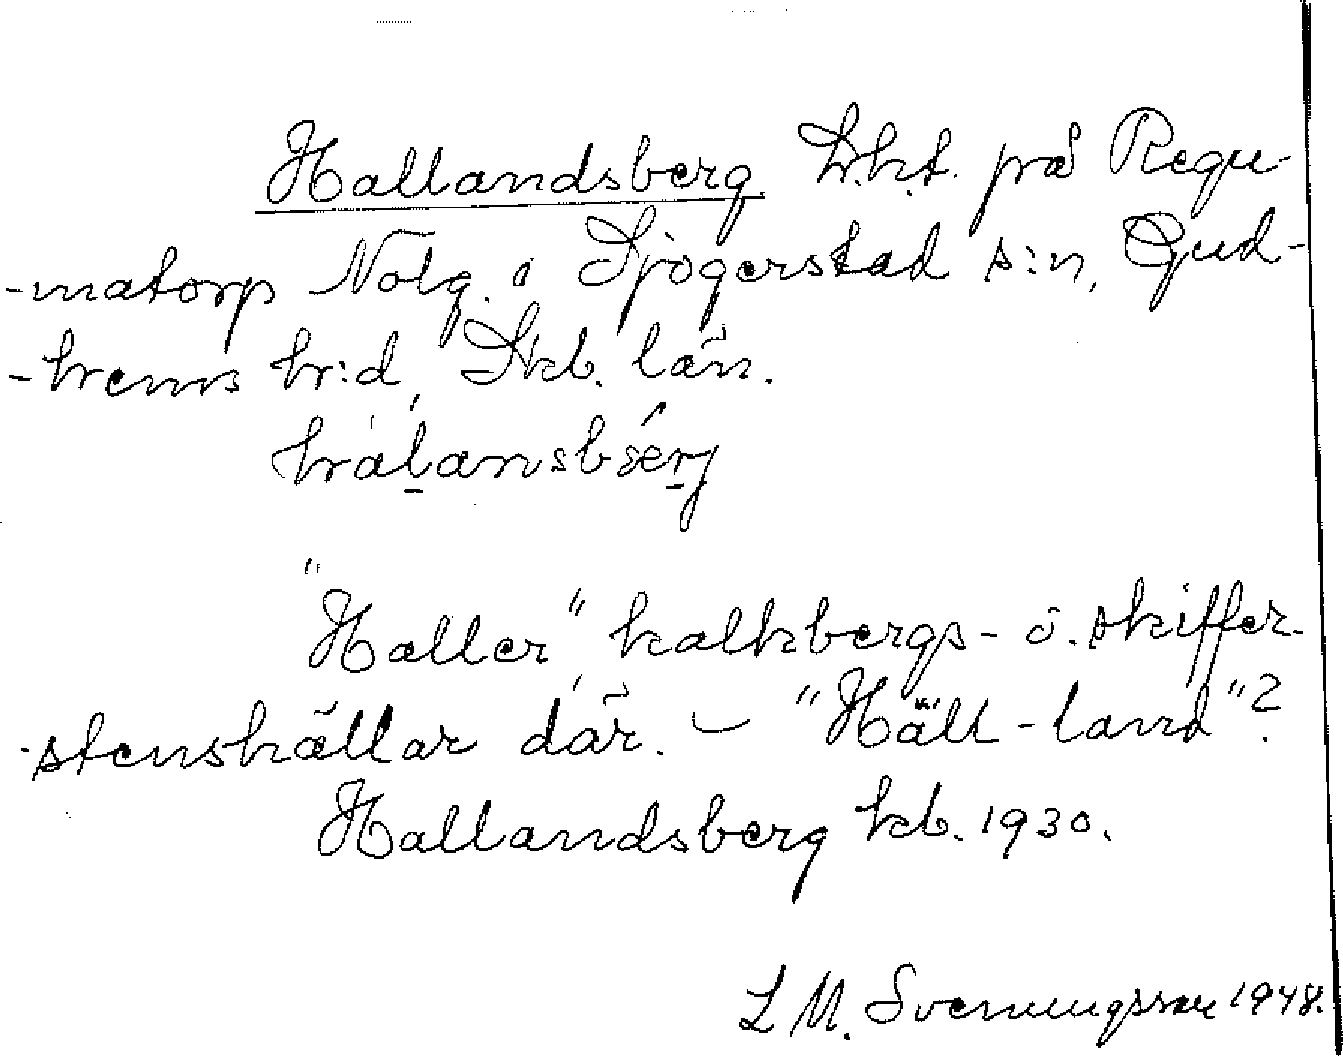 Hallandsberg. Lht. på Regu-
-matorp Nolg. i Sjögerstad s:n, Gud-
-hems h:d, Skb. län.
hálansbærj
"Haller", kalkbergs- o. skiffer-
-stenshällar där. – "Häll-land"?
Hallandsberg kb. 1930.
L M. Svenungsson 1948.